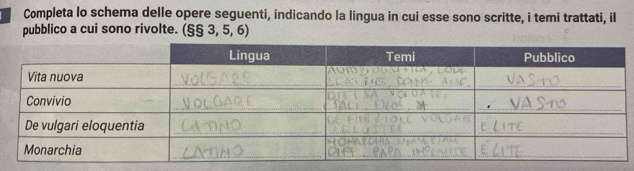 Completa lo schema delle opere seguenti, indicando la lingua in cui esse sono scritte, i temi trattati, il
pubblico a cui sono rivolte. (§§ 3, 5, 6)
Lingua Temi Pubblico
Vita nuova VOLGARE VASTO
Convivio VOLGARE VASTO
De vulgari eloquentia LATINO VOLGARE ELITE
Monarchia LATINO PAPA ELITE